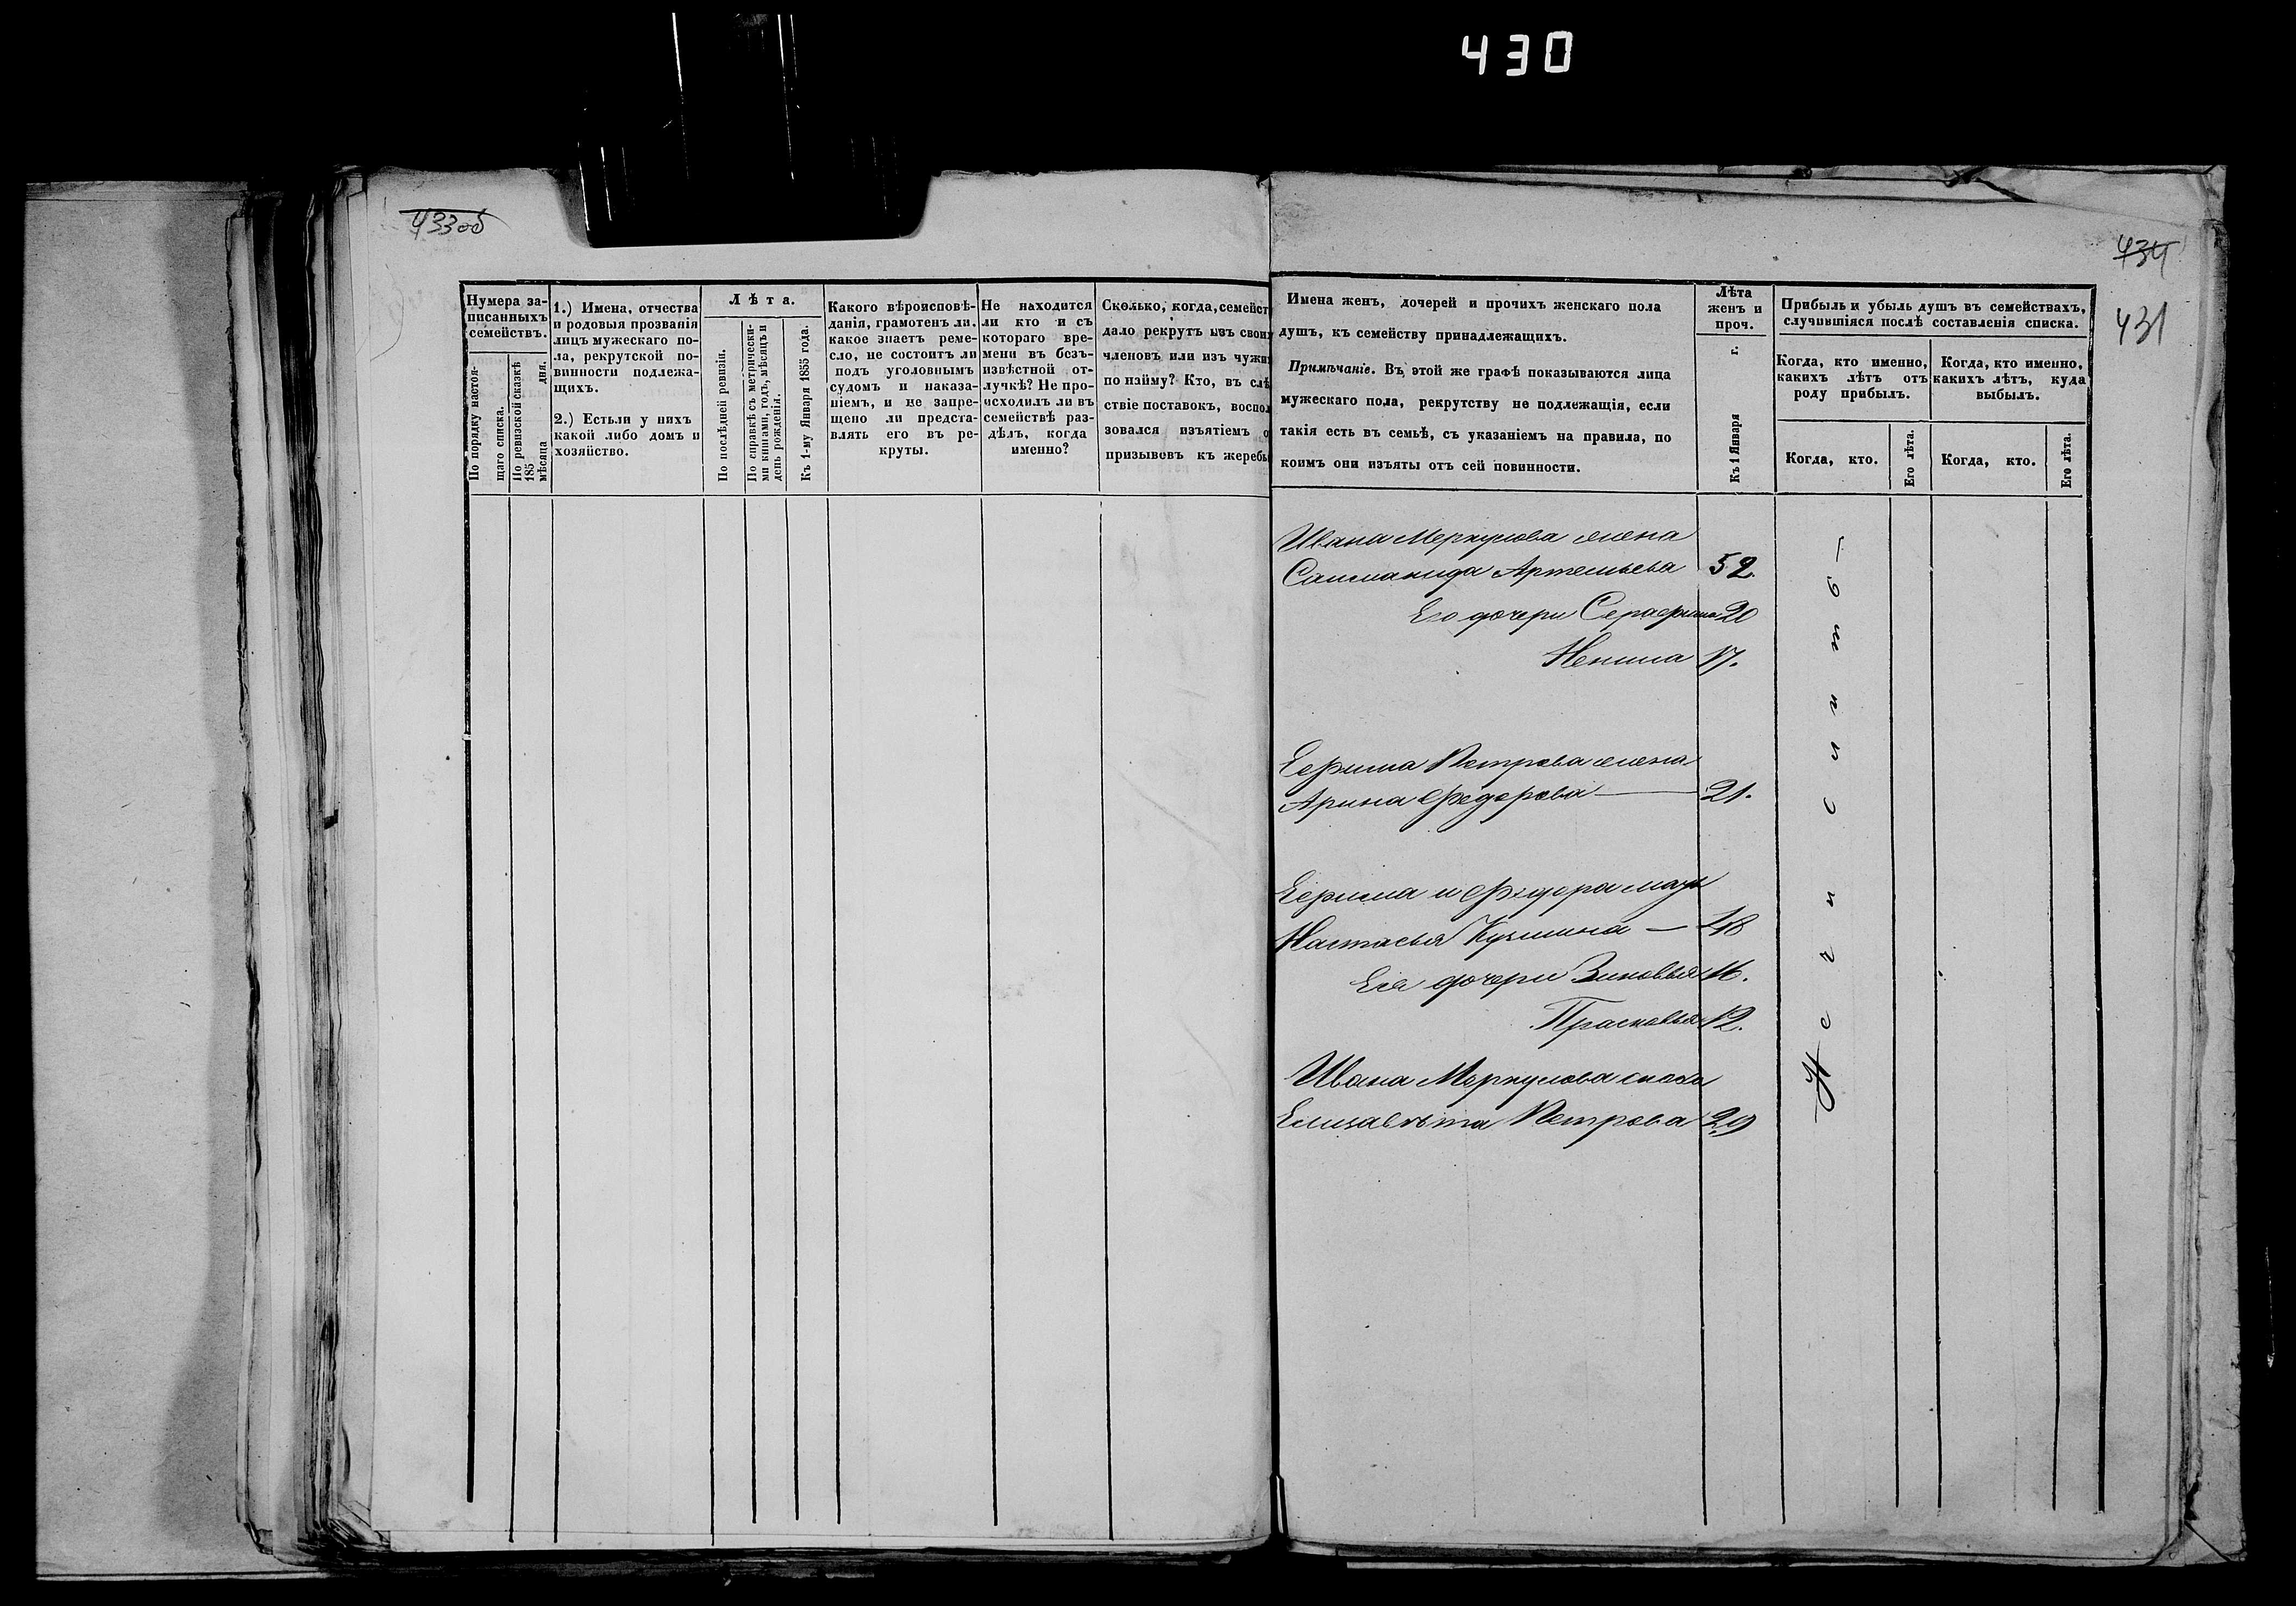 430
433об
434
431
Нумера записанныхъ семействъ.
По порядку настоящаго списка.
По ревизской сказкѣ 185 мѣсяца дня.
1.) Имена, отчества
и родовыя прозванія
лицъ мужескаго по-
ла, рекрутской по-
винности подлежа-
щихъ.
2.) Есть ли у нихъ
какой либо домъ и
хозяйство.
Лѣта.
По послѣдней ревизіи.
По справкѣ съ метрически-
ми книгами, годъ, мѣсяцъ и
день рожденія.
Къ 1-му Января 1855 года.
Какого вѣроисповѣ-
данія, грамотенъ ли,
какое знаетъ реме-
сло, не состоитъ ли
подъ уголовнымъ
судомъ и наказа-
ніемъ, и не запре-
щено ли предста-
влять его въ ре-
круты.
Не находится
ли кто и съ
котораго вре-
мени въ безъ-
извѣстной от-
лучкѣ? Не про-
исходилъ ли въ
семействѣ раз-
дѣлъ, когда
именно?
Сколько, когда, семейст
дало рекрутъ изъ свои
членовъ или изъ чужи
по найму? Кто, въ слѣ
ствіе поставокъ, воспол
зовался изъятіемъ о
призывовъ къ жеребь
Имена женъ, дочерей и прочихъ женскаго пола
душъ, къ семейству принадлежащихъ.
Примѣчаніе. Въ этой же графѣ показываются лица
мужескаго пола, рекрутству не подлежащія, если
такія есть въ семьѣ, съ указаніемъ на правила, по
коимъ они изъяты отъ сей повинности.
Лѣта
женъ и
проч.
Къ 1 Января г.
Прибыль и убыль душъ въ семействахъ,
случившіяся послѣ составленія списка.
Когда, кто именно,
какихъ лѣтъ отъ
роду прибылъ.
Когда, кто именно,
какихъ лѣтъ, куда
выбылъ.
Когда, кто.
Его лѣта.
Когда, кто.
Его лѣта.
Ивана Меркулова жена
Артемьева 52.
Его дочери Серафима 20
17.
Ефима Петрова жена
Арина Федорова — 21.
Ефима и Федора мать
Настасья Кузмина — 48
Ея дочери Зиновья 16.
Прасковья 12.
Ивана Меркулова сноха
Елизавѣта Петрова 29